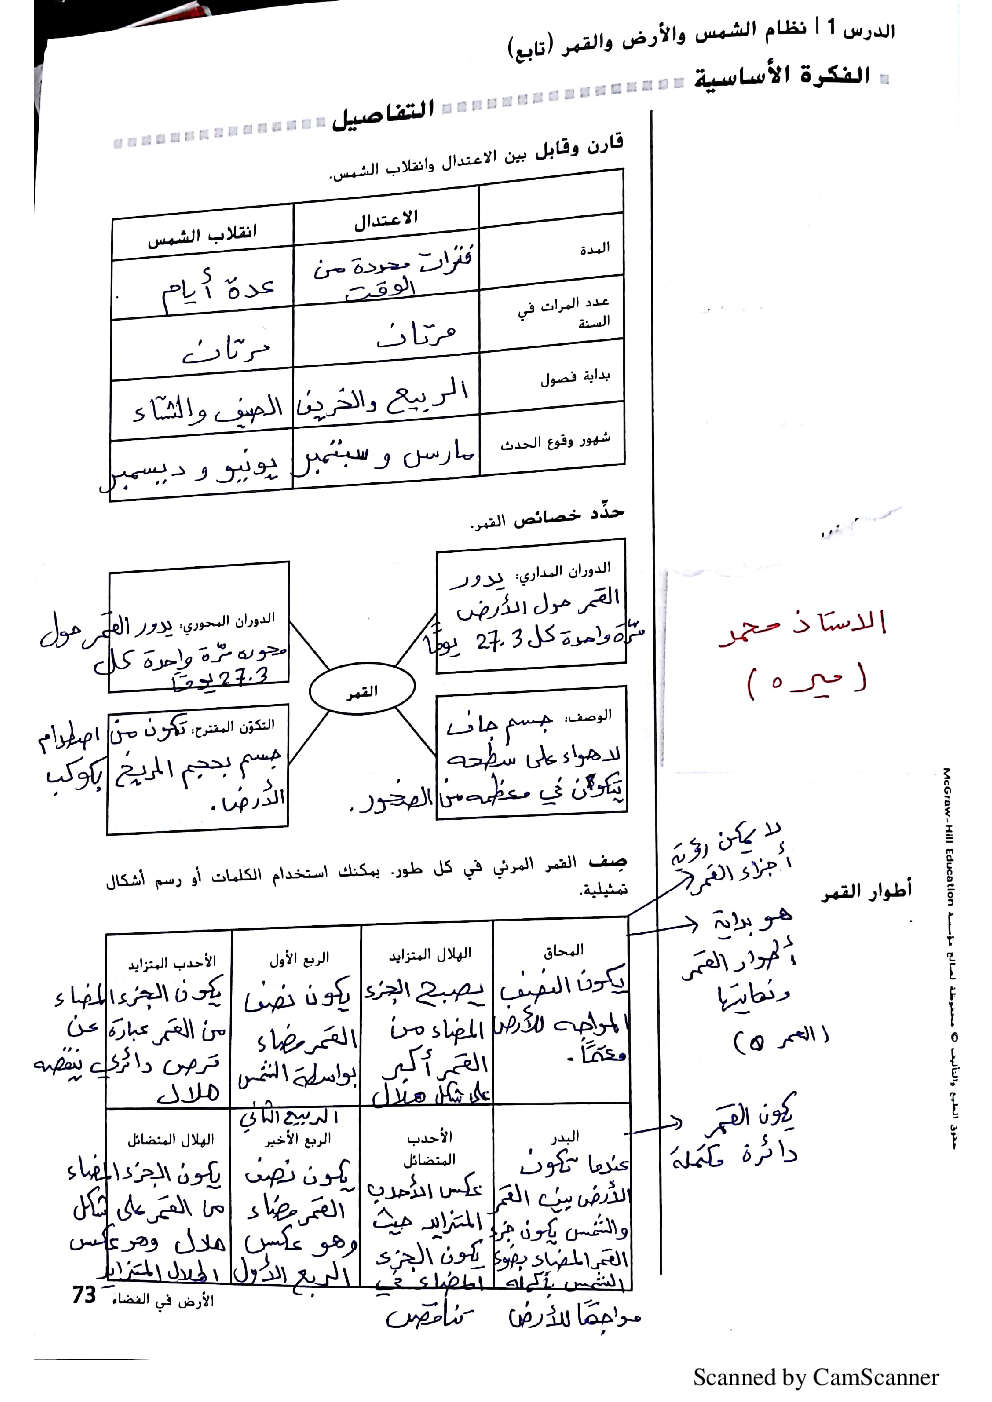 الدرس 1 | نظام الشمس والأرض والقمر (تابع)
الفكرة الأساسية
التفاصيل
قارن وقابل بين الاعتدال وانقلاب الشمس.
الاعتدال
انقلاب الشمس
المدة
فترات محددة من الوقت
عدة أيام
عدد المرات في السنة
مرتان
مرتان
بداية فصول
الربيع والخريف
الصيف والشتاء
شهور وقوع الحدث
مارس و سبتمبر
يونيو و ديسمبر
حدِّد خصائص القمر.
الدوران المداري: يدور
القمر حول الأرض
مرّة واحدة كل 27.3 يومًا
الدوران المحوري: يدور القمر حول
محوره مرّة واحدة كل
27.3 يومًا
القمر
الوصف: جسم جاف
لا هواء على سطحه
يتكون في معظمه من الصخور.
التكوّن المقترح: تكون من اصطدام
جسم بحجم المريخ بكوكب
الأرض.
الاستاذ محمد
أطوار القمر
صِف القمر المرئي في كل طور. يمكنك استخدام الكلمات أو رسم أشكال
تمثيلية.
لا يمكن رؤية
أجزاء القمر
هو بداية
أطوار القمر
ونهايتها
المحاق
يكون النصف
المواجه للأرض
معتمًا.
الهلال المتزايد
يصبح الجزء
المضاء من
القمر أكبر
على شكل هلال
الربع الأول
يكون نصف
القمر مضاء
بواسطة الشمس
الأحدب المتزايد
يكون الجزء المضاء
من القمر عبارة عن
قرص دائري ينقصه
هلال
يكون القمر
دائرة مكتملة
البدر
عندما تكون
الأرض بين القمر
والشمس يكون جزء
القمر المضاء بضوء
الشمس بأكمله
مواجهًا للأرض
الأحدب
المتضائل
عكس الأحدب
المتزايد حيث
يكون الجزء
المضاء في
تناقص
الربيع الثاني
الربع الأخير
يكون نصف
القمر مضاء
وهو عكس
الربع الأول
الهلال المتضائل
يكون الجزء المضاء
من القمر على شكل
هلال وهو عكس
الهلال المتزايد
الأرض في الفضاء 73
حقوق الطبع والتأليف © محفوظة لصالح مؤسسة McGraw-Hill Education
Scanned by CamScanner